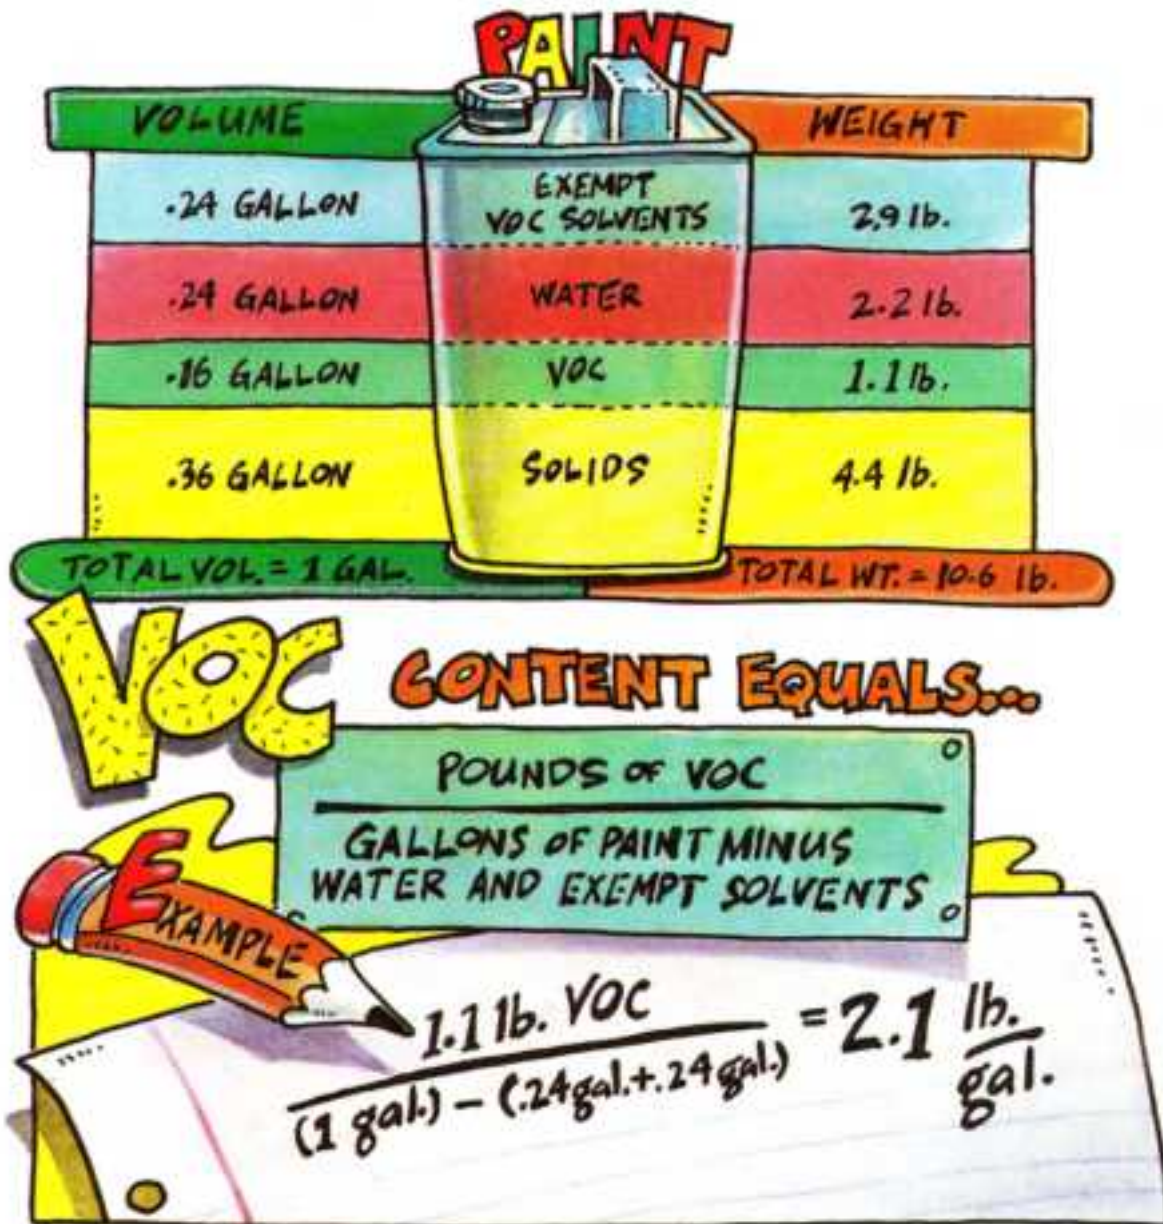 PAINT
VOLUME WEIGHT
.24 GALLON EXEMPT VOC SOLVENTS 2.9 lb.
.24 GALLON WATER 2.2 lb.
.16 GALLON VOC 1.1 lb.
.36 GALLON SOLIDS 4.4 lb.
TOTAL VOL. = 1 GAL. TOTAL WT. = 10.6 lb.
VOC CONTENT EQUALS...
POUNDS OF VOC
GALLONS OF PAINT MINUS
WATER AND EXEMPT SOLVENTS
EXAMPLE
1.1 lb. VOC
(1 gal.) - (.24gal.+.24gal.)
= 2.1 lb.
gal.